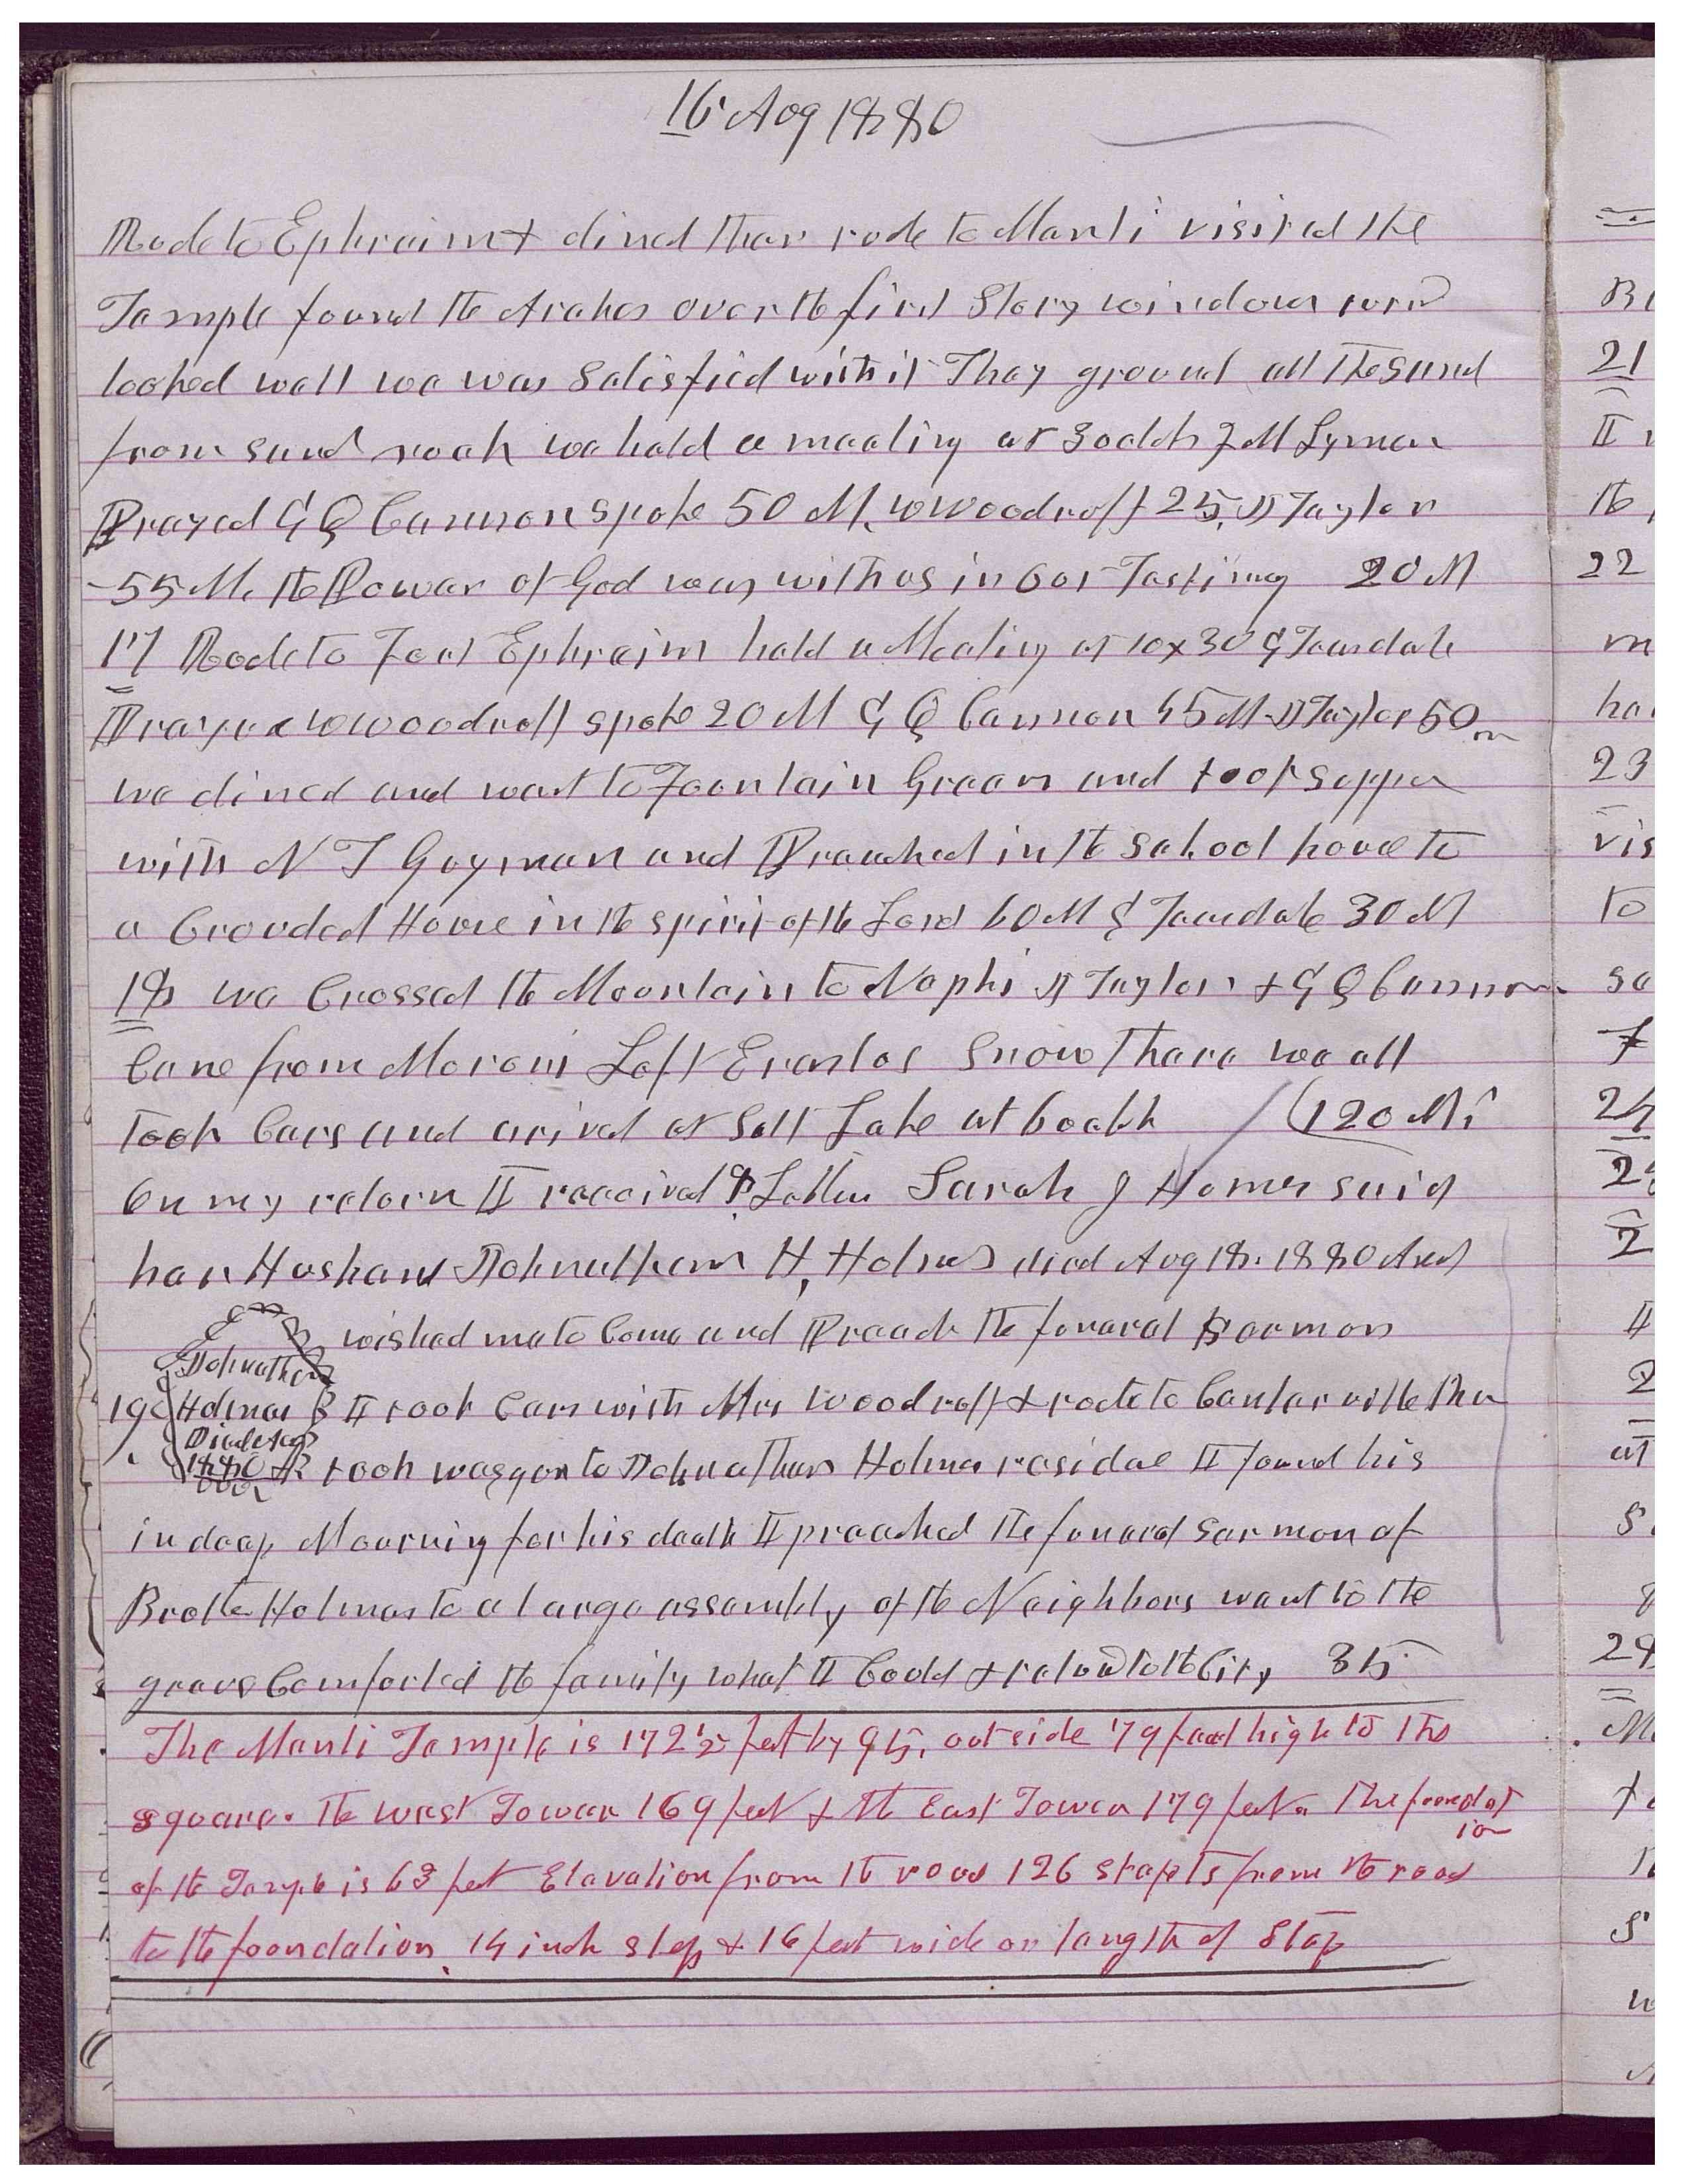 16 Aug 1880
Rode to Ephraim & dined then rode to Manti visited the
Temple found the Arches over the first Story windows turnd
looked well we was satisfied with it They ground all the sand
from sand rock we held a meeting at 3 oclok F M Lyman
Prayed G Q Cannon spoke 50 M, W Woodruff 25, J Taylor
55 M. the Power of God was with us in our Testimoy 20 M
17 Rode to Fort Ephraim held a Meeting at 10x30 G Teasdale
Prayed W Woodruff spoke 20 M G Q Cannon 45 M J Taylor 50 m
we dined and went to Fountain Green and took supper
with N T Guyman and Preached in the School house to
a Crouded House in the spirit of the Lord 60 M G Teasdale 30 M
18 we Crossed the Mountain to Nephi J Taylor & G Q Cannon
Came from Moroni Left Erastus Snow there we all
took Cars and arived at Salt Lake at 6 oclok (120 Mi
On my return I received 9 Letters Sarah J Homes said
her Husband Johnathan H, Holmes died Aug 18. 1880 And
wished me to Come and Preach the funeral Sermon
Johnathan
19 Holmes I took Cars with Mrs Woodruff & rode to Centerville then
Died Aug
1880 took waggon to Johnathan Holmes residee I found his
in deep Mourning for his death I preached the funeral sermon of
Brother Holmes to a large assembly of the Neighbors went to the
grave Comforted the family what I Could & returnd to the City 35
The Manti Temple is 172½ feet by 95, outside 79 feet high to the
square. the west Tower 169 feet & the East Tower 179 feet. The foundat
ion
of the Temple is 63 feet Elevation from the road 126 stepts from the road
to the foundation, 14 inch step & 16 feet wide or length of Step